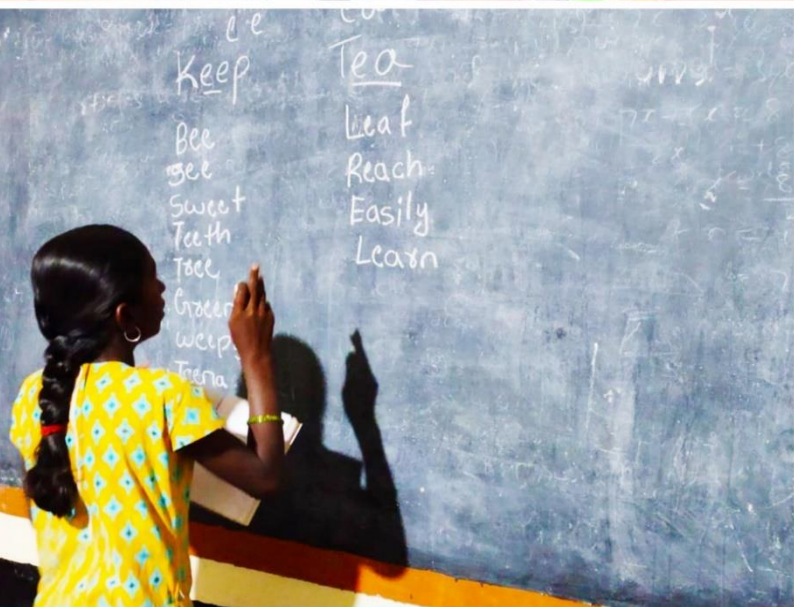 ee
Keep
Bee
See
Sweet
Teeth
Tree
Green
Weep
Teena
Tea
Leaf
Reach
Easily
Learn